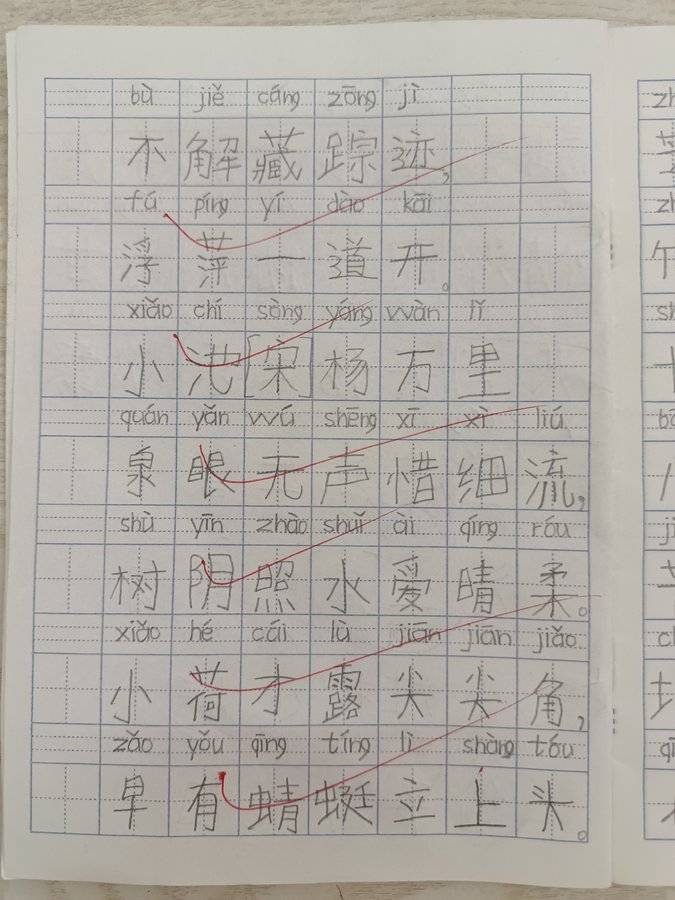 bù jiě cáng zōng jì
不解藏踪迹，
fú píng yí dào kāi
浮萍一道开。
xiǎo chí sòng yáng wàn lǐ
小池[宋]杨万里
quán yǎn wú shēng xī xì liú
泉眼无声惜细流，
shù yīn zhào shuǐ ài qíng róu
树阴照水爱晴柔。
xiǎo hé cái lù jiān jiān jiǎo
小荷才露尖尖角，
zǎo yǒu qīng tíng lì shàng tóu
早有蜻蜓立上头。